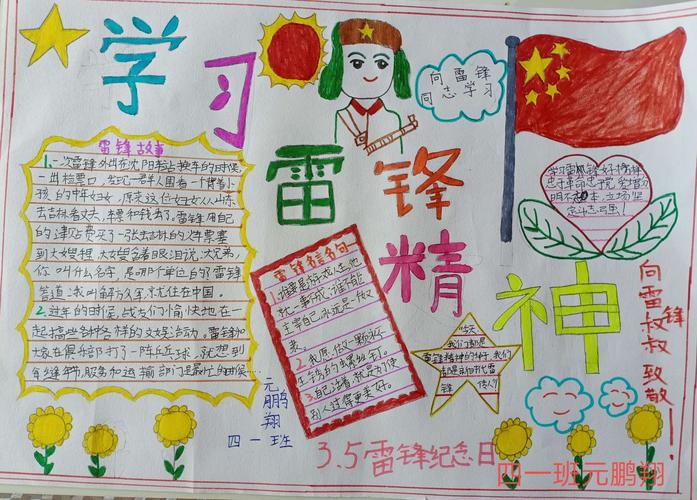 学习
雷锋
精
神
向雷锋
同志学习
雷锋故事
1.一次雷锋外出在沈阳转站换车的时候,
一出检票口,发现一群人围着一个背着小
孩的中年妇女,原来这位妇女从山东
去吉林看丈夫,车票和钱丢了。雷锋用自己
的津贴费买了一张去吉林的火车票塞
到大嫂
你叫什么名字,是哪个单位的?雷锋
我叫解放军,就住在中国。
2.过年的时候,战友们愉快地在一
起搞些各种各样的文娱活动。雷锋和
大家在俱乐部打了一阵乒乓球,就想到
服务和运输部门是最忙的时候…
雷锋名言名句
1.
2.我愿做一颗永不
生锈的螺丝钉。
3.自己活着,就是为了使
别人过得更美好。
学习雷锋好榜样
忠于革命忠于党,爱憎分
明不忘本,立场坚
今天
我们都是
雷锋精神的种子,我们
向雷锋叔叔致敬!
元鹏翔
四一班
3.5雷锋纪念日
四一班元鹏翔